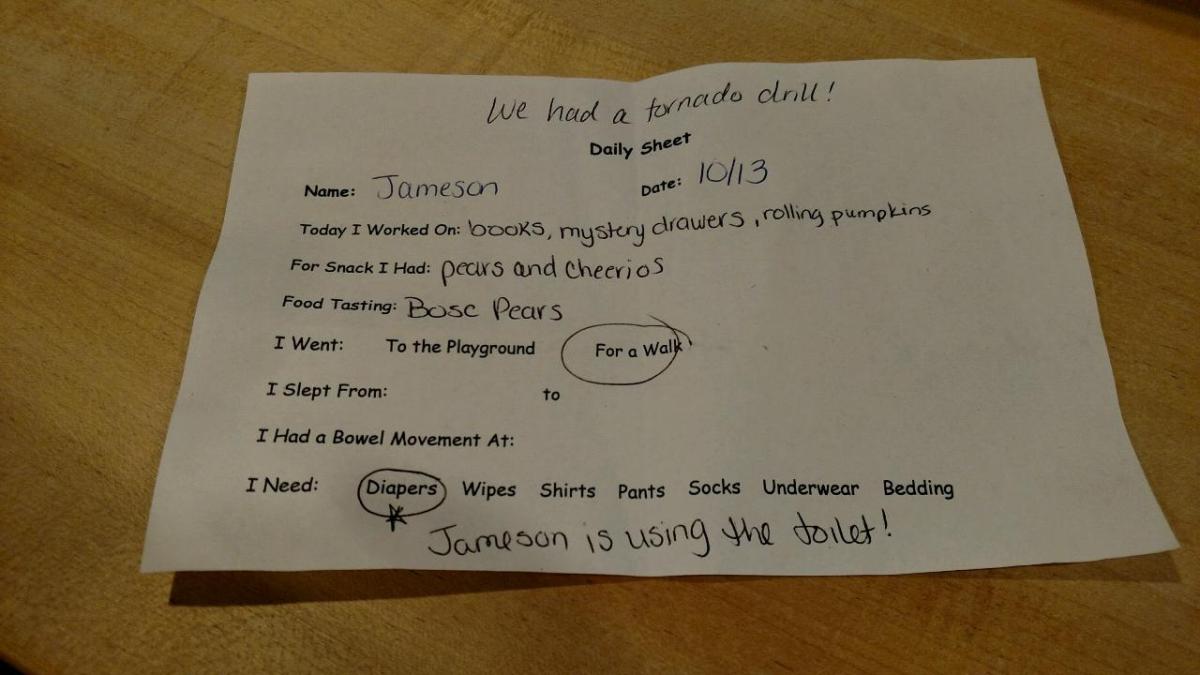 We had a tornado drill!
Daily Sheet
Name: Jameson Date: 10/13
Today I Worked On: books, mystery drawers, rolling pumpkins
For Snack I Had: pears and cheerios
Food Tasting: Bosc Pears
I Went: To the Playground For a Walk
I Slept From: to
I Had a Bowel Movement At:
I Need: Diapers Wipes Shirts Pants Socks Underwear Bedding
Jameson is using the toilet!